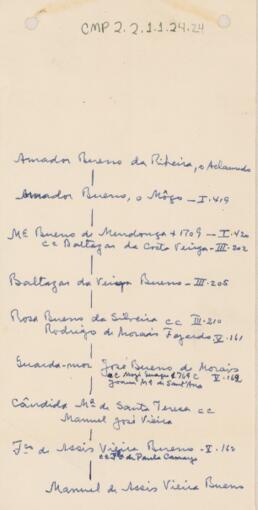 CMP 2.2.1.1.24.24
Amador Bueno da Ribeira, o Aclamado
Amador Bueno, o Môço - I.419
Mª Bueno de Mendonça + 1709 - I.420
cc Baltazar da Costa Veiga - III.202
Baltazar da Veiga Bueno - III.205
Rosa Bueno da Silveira cc III.210
Rodrigo de Morais Fazardo V.161
Guarda-mor José Bueno de Morais
cc Mogi Guaçu 1769 c V.162
Joana Mª de Sant'Ana
Cândida Mª de Santa Teresa cc
Manuel José Vieira
Fco de Assis Vieira Bueno - V.162
de Paula Camargo
Manuel de Assis Vieira Bueno